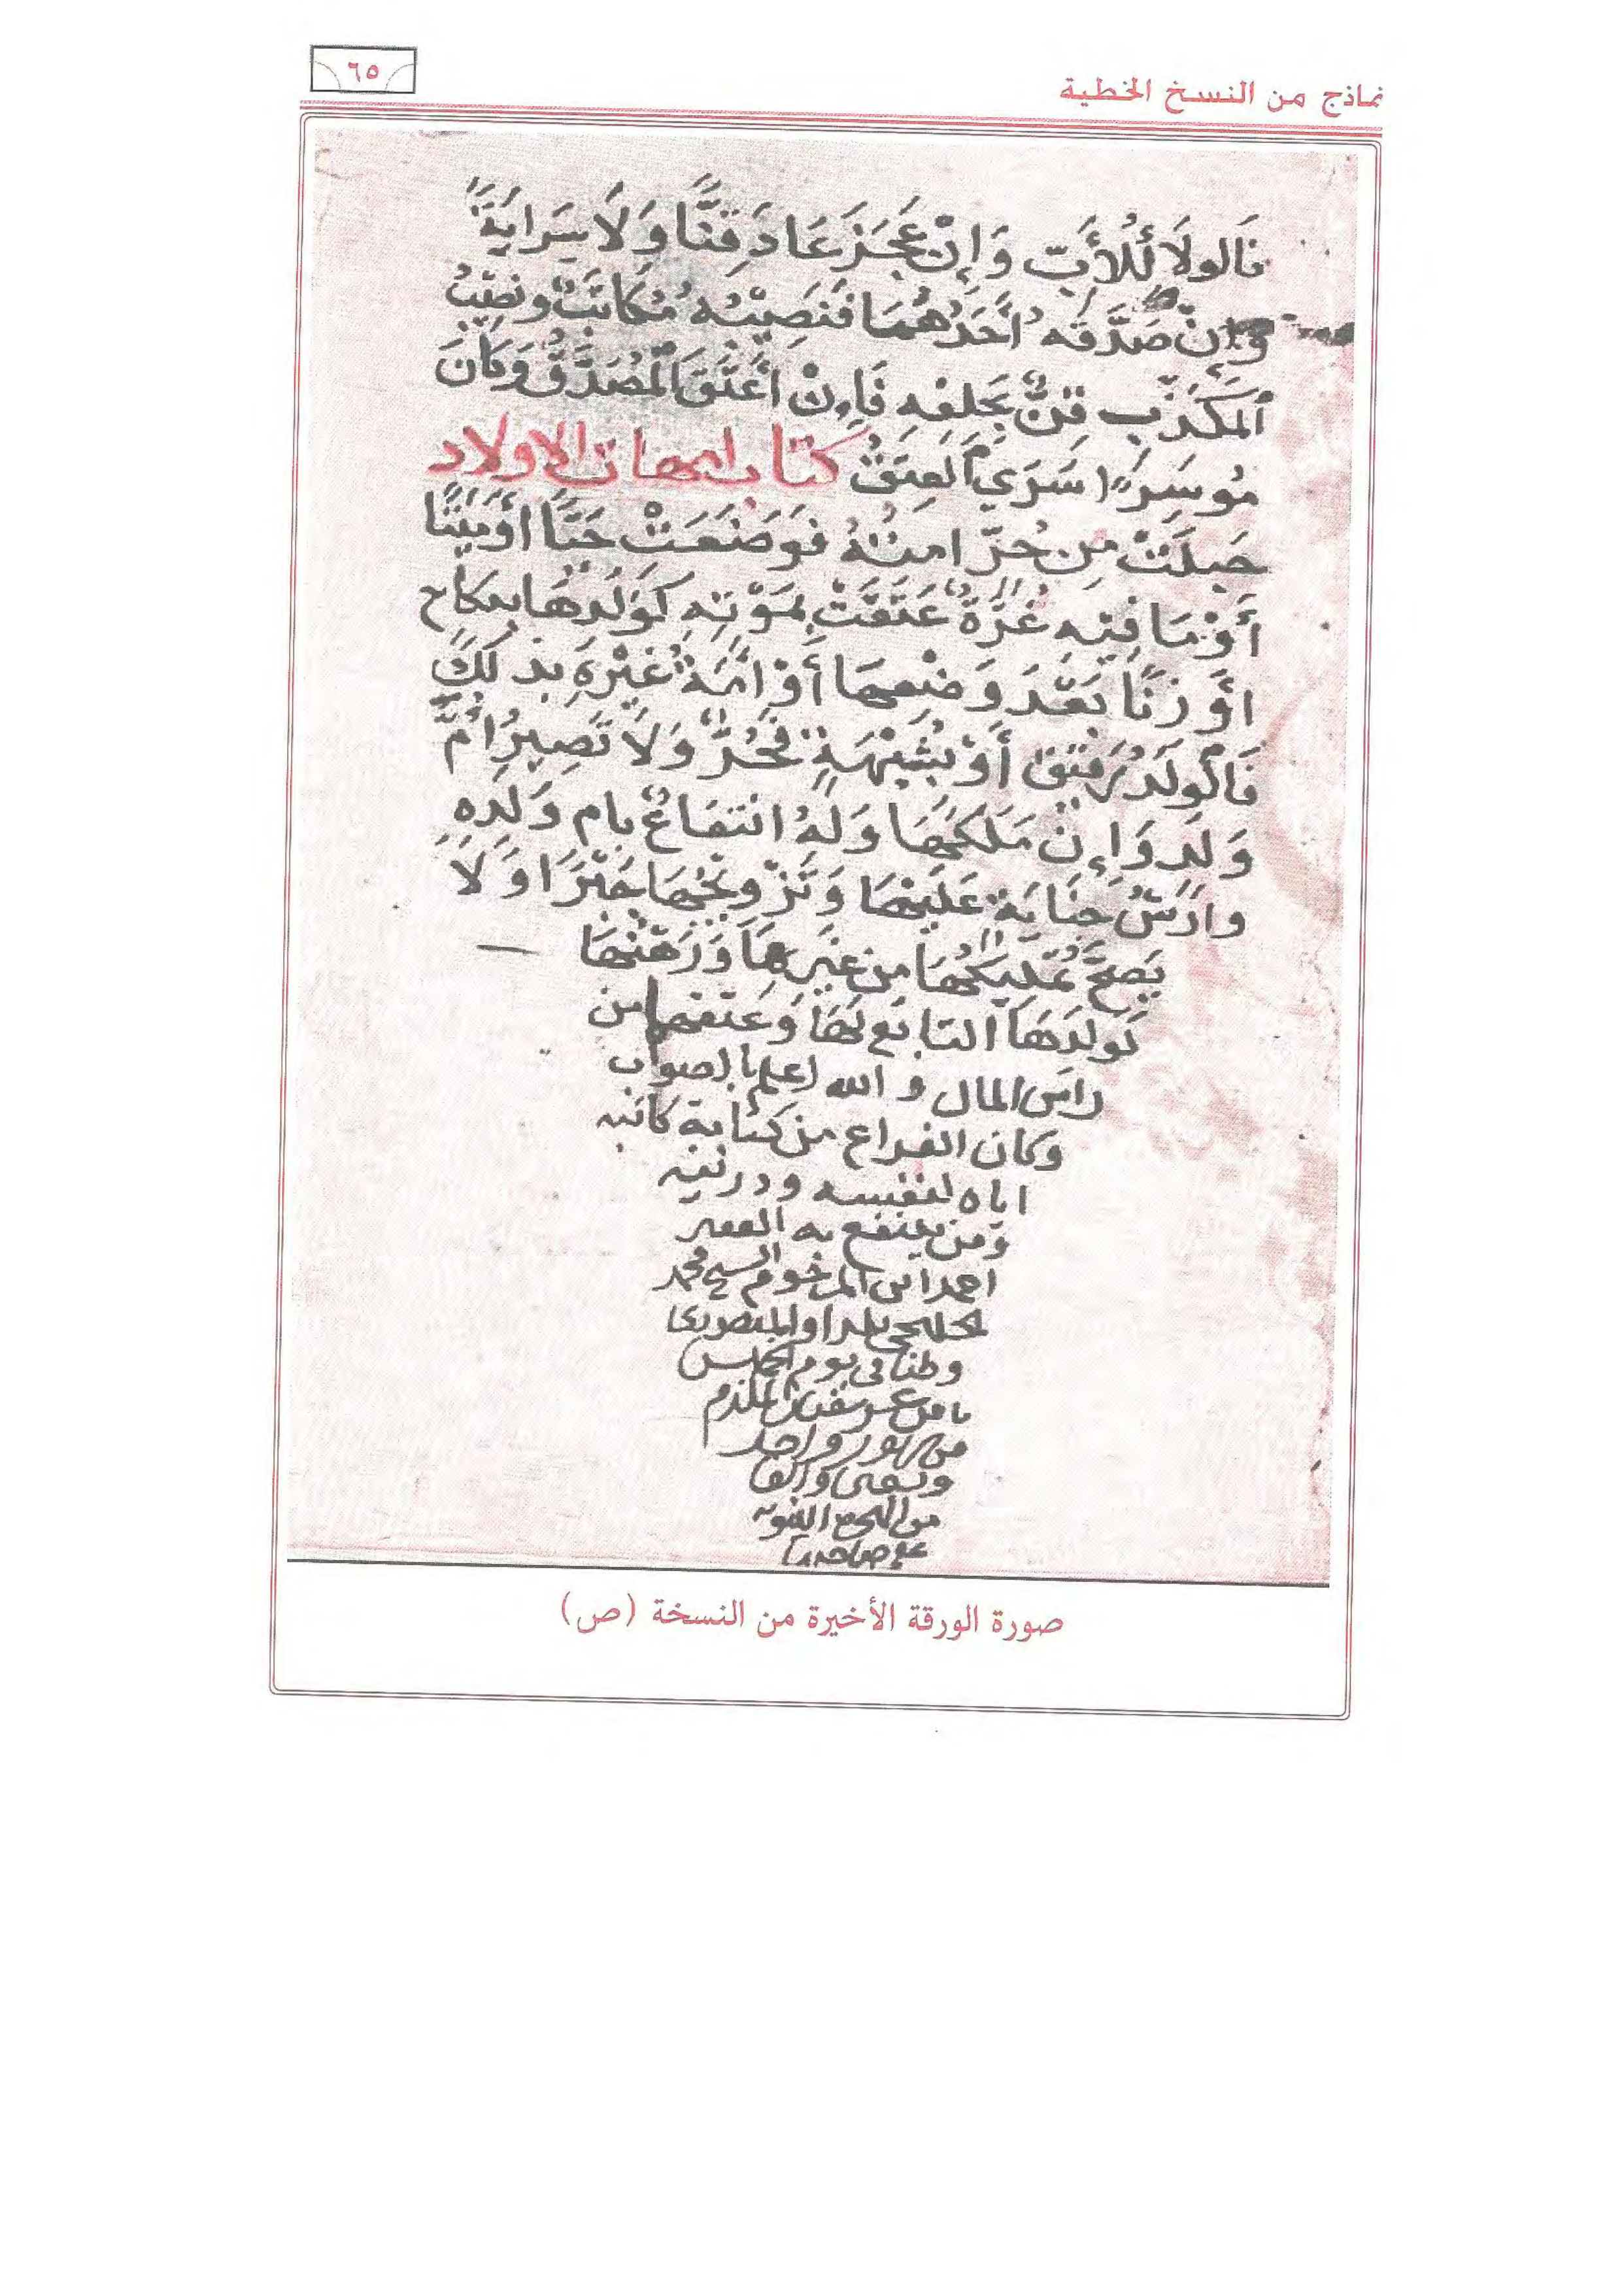 نماذج من النسخ الخطية
٦٥
فَالولَاءُ لِلْأَبِ وَإِنْ عَجَزَ عَادَ قِنًّا وَلَا سِرَايَةَ
وَإِنْ صَدَّقَهُ أَحَدُهُمَا فَنَصِيْبُهُ مُكَاتَبٌ ونَصِيْبُ
اَلْمُكَذِّبِ قِنٌّ بِحَلِفِهِ فَإِنْ أَعْتَقَ اَلْمُصَدِّقُ وَكَانَ
مُوسِرًا سَرَى اَلْعِتْقُ كتاب امهات الاولاد
حَبِلَتْ مِن حُرٍّ امتُهُ فَوَضَعَتْ حَيًّا أوْ مَيِّتًا
أَوْ مَا فِيْهِ غُرَّةٌ عَتَقَتْ بِمَوْتِهِ كَوَلَدِهَا بنِكَاحٍ
اوْ زِنًا بَعْدَ وَضْعِهَا أَوْ أَمَةُ غَيْرِهِ بذلكَ
فَالْوَلَدُ رَقِيْقٌ أَوْ بِشُبْهَةٍ فَحُرٌّ وَلَا تَصِيرُ أُمَّ
وَلَدٍ وَإِنْ مَلَكَهَا وَلَهُ انتفَاعٌ بام وَلَدِهِ
وارْشُ جِنَايَةٍ عَلَيْهَا وَتَزْوِيجُهَا جَبْرًا وَلَا
يَصِحُّ تَمْلِيْكُهَا مِن غَيْرِهَا وَرَهْنُهَا
كَولَدِهَا التَابِعِ لَهَا وَعتقهَا من
راسَ المال و الله اعلم بالصواب
وكان الفراغ من كتابة كاتبه
اياه لنفسه وذريته
وَمن ينتفع به الفقير
احمد ابن المرحوم الشيخ محمد
وطنا في يوم الخميس
من شهور واحد
والف
من الهجرة النبويه
علي صاحبها
صورة الورقة الأخيرة من النسخة (ص)